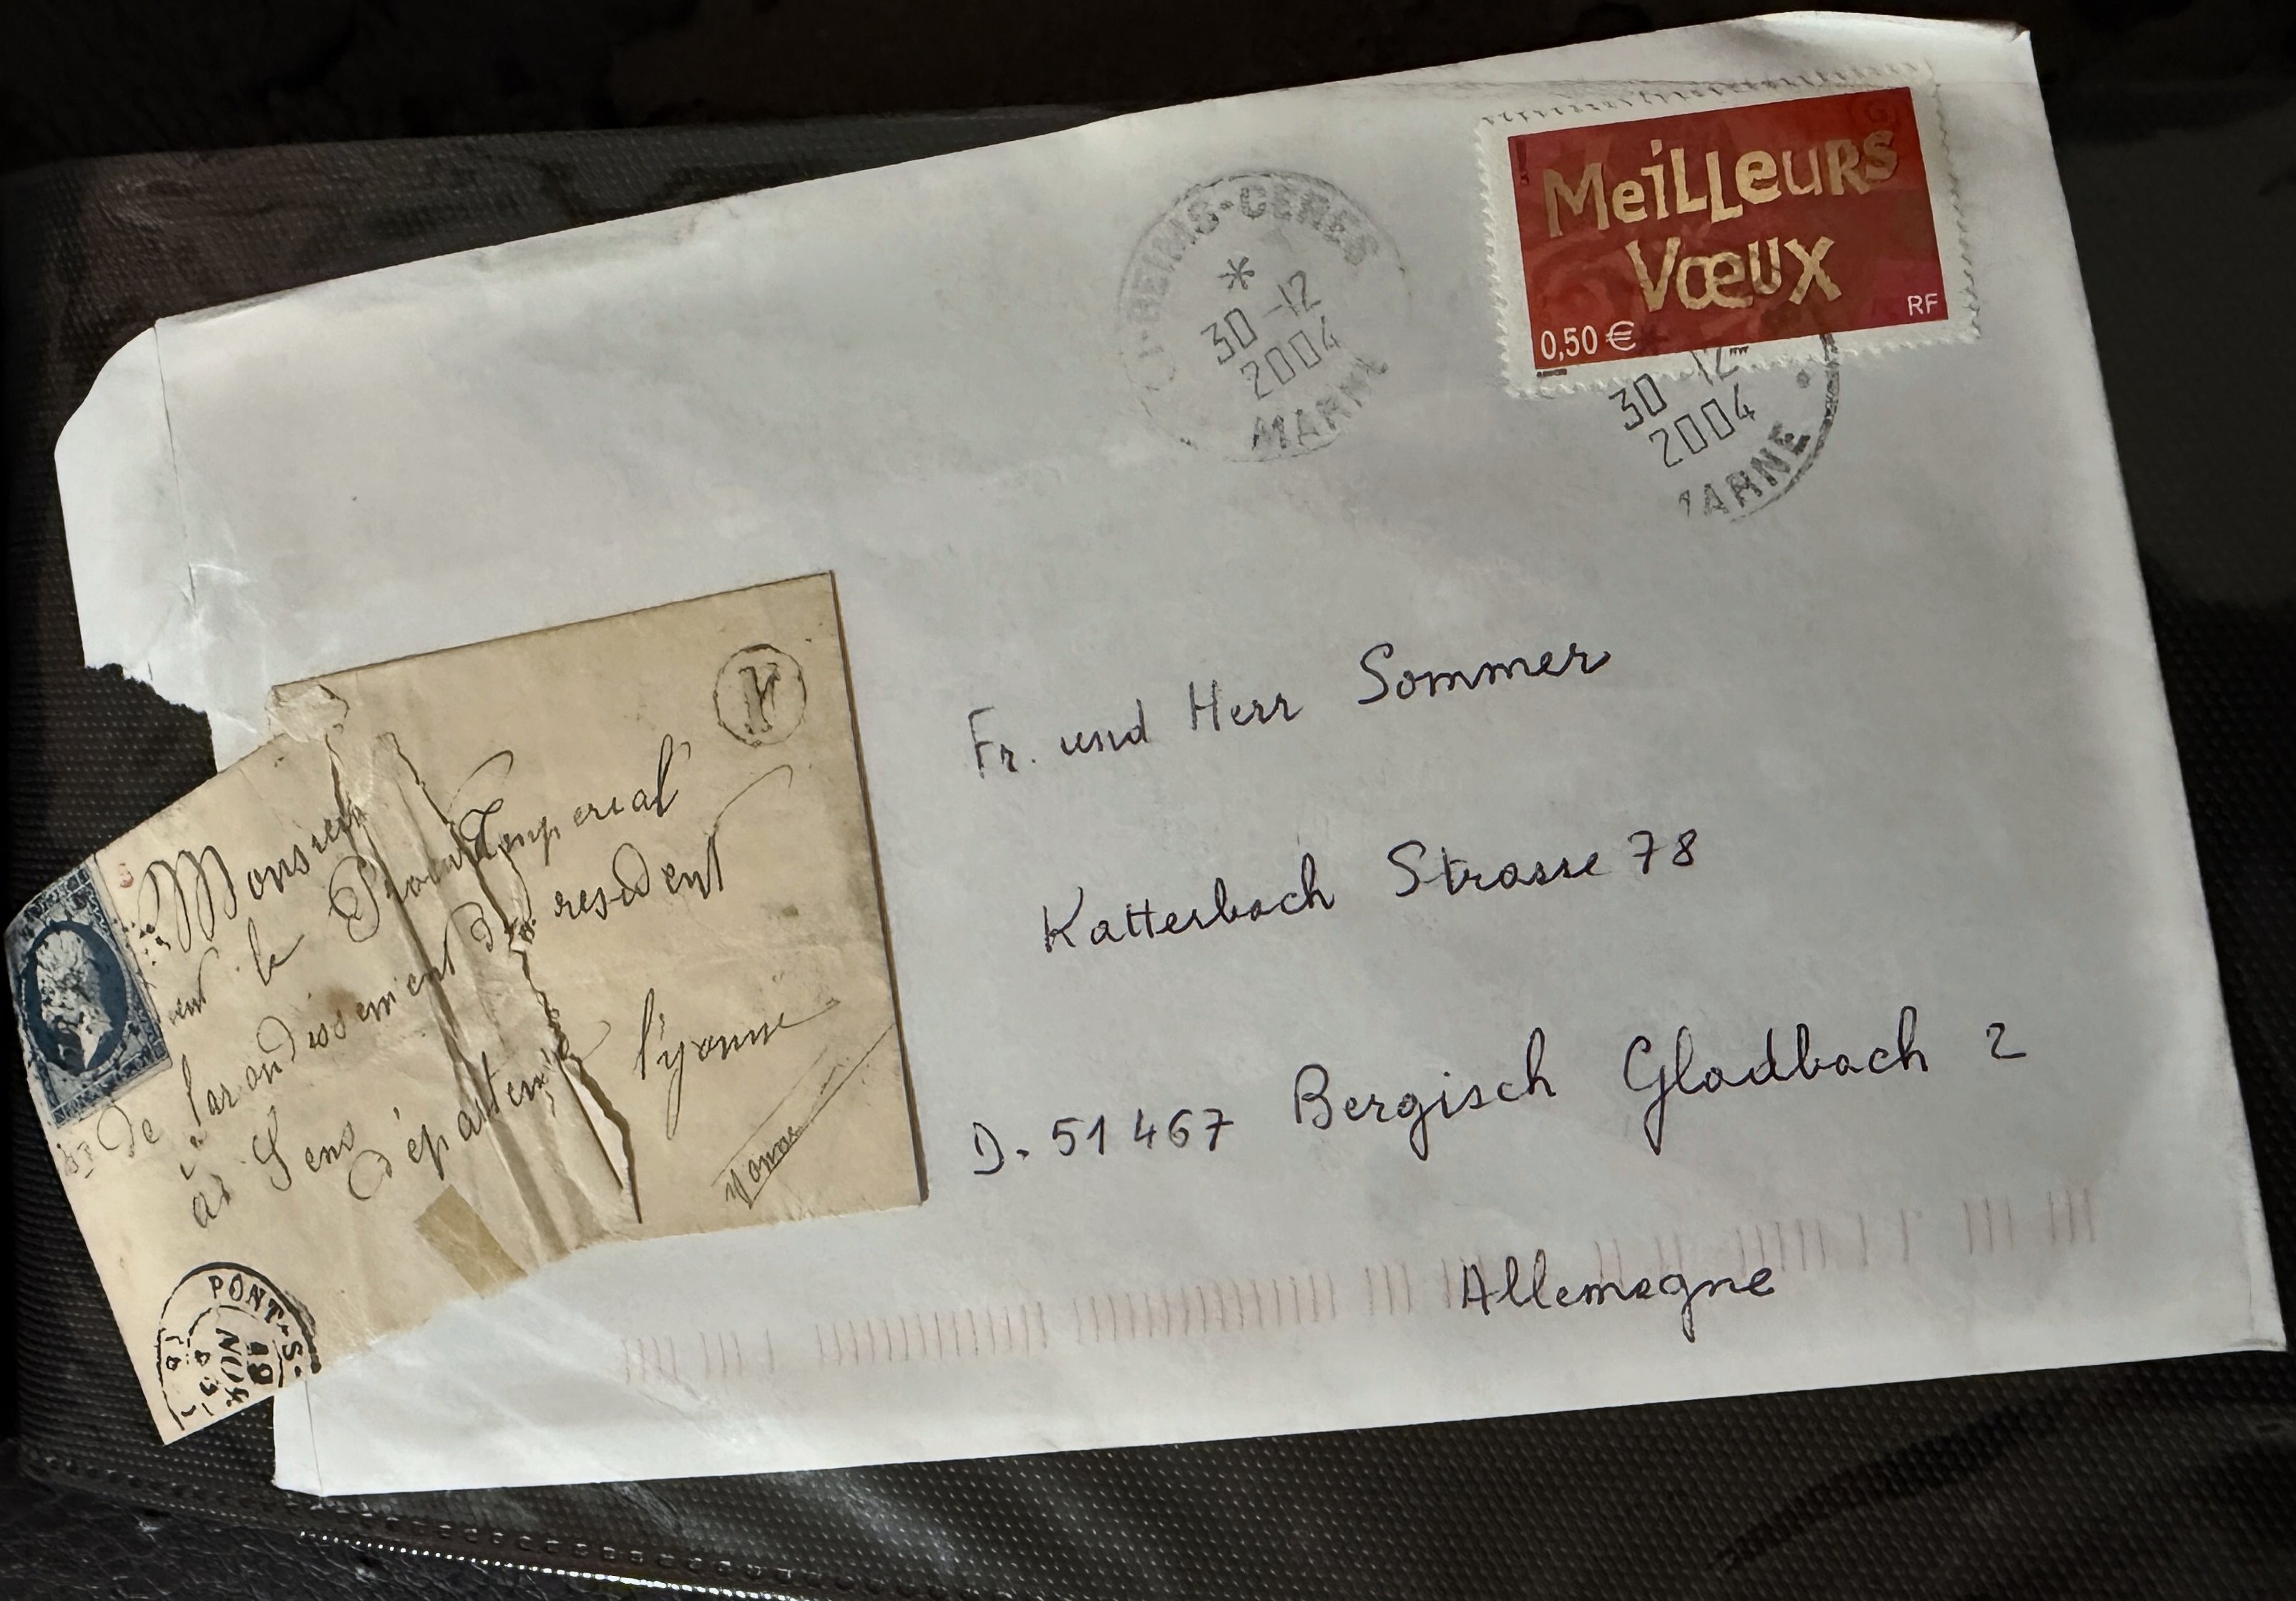 MeiLLeuRS
VœUX
0,50 €
RF
REIMS-CERES
*
30-12
2004
MARNE
30 12
2004
MARNE
Fr. und Herr Sommer
Katterbach Strasse 78
D. 51467 Bergisch Gladbach 2
Allemagne
Monsieur
le Imperial
De l'arondissement resident
à Sens
département l'yonne
Yonne
PONT-S-
19